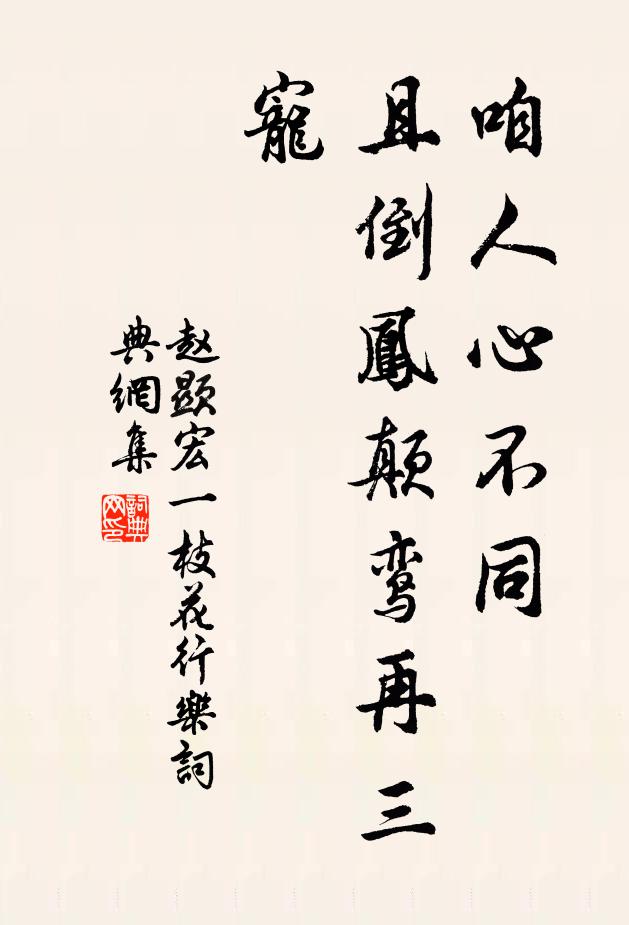 咱人心不同
且倒鳳顛鸾再三
寵
赵顯宏一枝花行樂詞
典網集
詞典网印